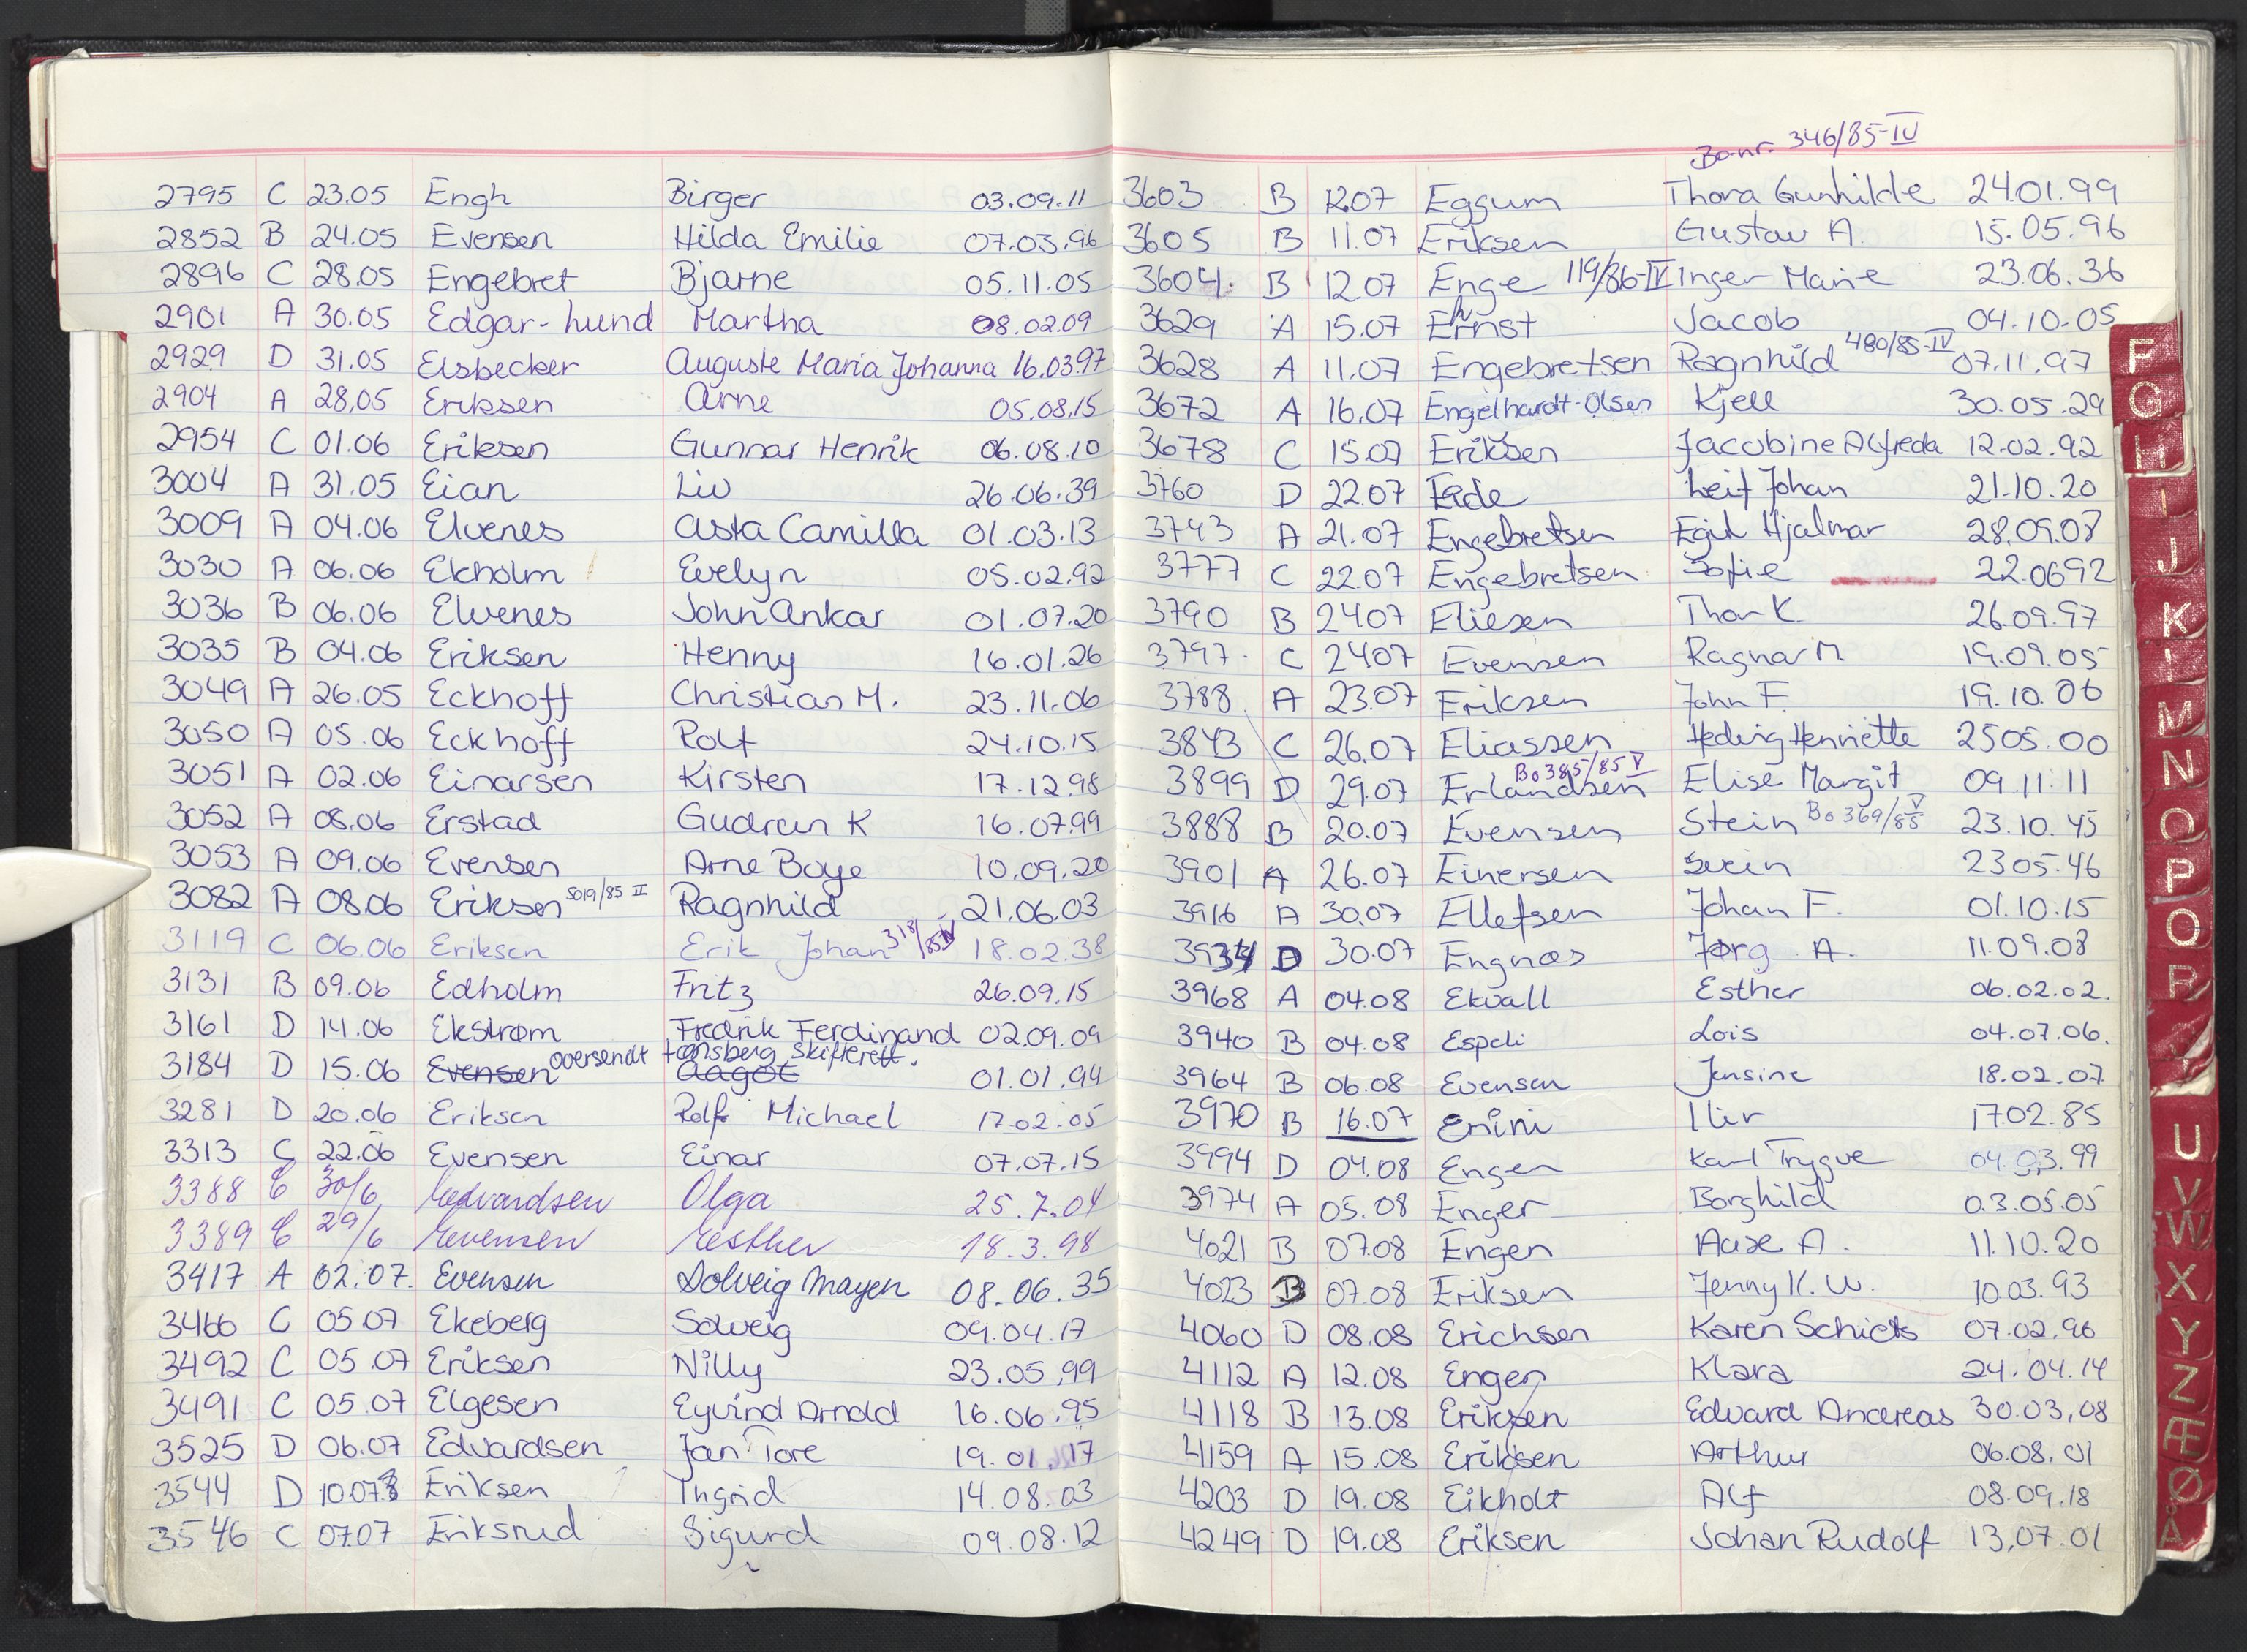 2795 C 23.05 Engh Birger 03.09.11
2852 B 24.05 Evensen Hilda Emilie 07.03.96
2896 C 28.05 Engebret Bjarne 05.11.05
2901 A 30.05 Edgar-hund Martha 08.02.09
2929 D 31.05 Elsbecker Auguste Maria Johanna 16.03.97
2904 A 28.05 Eriksen Arne 05.08.15
2954 C 01.06 Eriksen Gunnar Henrik 06.08.10
3004 A 31.05 Eian Liv 26.06.39
3009 A 04.06 Elvenes Asta Camilla 01.03.13
3030 A 06.06 Ekholm Evelyn 05.02.92
3036 B 06.06 Elvenes John Ankar 01.07.20
3035 B 04.06 Eriksen Henny 16.01.26
3049 A 26.05 Eckhoff Christian M. 23.11.06
3050 A 05.06 Eckhoff Rolf 24.10.15
3051 A 02.06 Einarsen Kirsten 17.12.98
3052 A 08.06 Erstad Gudrun K 16.07.99
3053 A 09.06 Evensen Arne Boye 10.09.20
3082 A 08.06 Eriksen 5019/85 II Ragnhild 21.06.03
3119 C 06.06 Eriksen Erik Johan 318/85 IV 18.02.38
3131 B 09.06 Edholm Fritz 26.09.15
3161 D 14.06 Ekstrøm Fredrik Ferdinand 02.09.09
oversendt tønsberg skifterett.
3184 D 15.06 Evensen Aagot 01.01.94
3281 D 20.06 Eriksen Rolf Michael 17.02.05
3313 C 22.06 Evensen Einar 07.07.15
3388 C 30/6 Edvardsen Olga 25.7.04
3389 C 29/6 Evensen Esther 18.3.98
3417 A 02.07. Evensen Solveig Mayen 08.06.35
3466 C 05.07 Ekeberg Solveig 09.04.17
3492 C 05.07 Eriksen Nilly 23.05.99
3491 C 05.07 Elgesen Eyvind Arnold 16.06.95
3525 D 06.07 Edvardsen Jan Tore 19.01.17
3544 D 10.07 Eriksen Ingrid 14.08.03
3546 C 07.07 Eriksrud Sigurd 09.08.12
Bo.nr. 346/85-IV
3603 B 12.07 Eggum Thora Gunhilde 24.01.99
3605 B 11.07 Eriksen Gustav A. 15.05.96
3604. B 12.07 Enge 119/86-IV Inger Marie 23.06.36
3629 A 15.07 Ernst Jacob 04.10.05
3628 A 11.07 Engebretsen Ragnhild 480/85-IV 07.11.97
3672 A 16.07 Engelhardt-Olsen Kjell 30.05.29
3678 C 15.07 Eriksen Jacobine Alfreda 12.02.92
3760 D 22.07 Eide Leif Johan 21.10.20
3743 A 21.07 Engebretsen Egil Hjalmar 28.09.07
3777 C 22.07 Engebretsen Sofie 22.0692
3790 B 24.07 Eliesen Thor K. 26.09.97
3797. C 24.07 Evensen Ragnar M 19.09.05
3788 A 23.07 Eriksen John F. 19.10.06
3843 C 26.07 Eliassen Hedvig Henriette 2505.00
3899 D 29.07 Erlandsen Bo 385/85 V Elise Margit 09.11.11
3888 B 20.07 Evensen Stein Bo 369/85 V 23.10.45
3901 A 26.07 Einersen Svein 2305.46
3916 A 30.07 Ellefsen Johan F. 01.10.15
3934 D 30.07 Engnæs Jørg A. 11.09.08
3968 A 04.08 Ekvall Esther 06.02.02.
3940 B 04.08 Espeli Lois 04.07.06.
3964 B 06.08 Evensen Jensine 18.02.07
3970 B 16.07 Emini Ilir 17.02.85
3994 D 04.08 Engen Karl Trygve 04.03.99
3974 A 05.08 Enger Borghild 03.05.05
4021 B 07.08 Engen Aase A. 11.10.20
4023 B 07.08 Eriksen Jenny K. W. 10.03.93
4060 D 08.08 Erichsen Karen 07.02.96
4112 A 12.08 Engen Klara 24.04.14
4118 B 13.08 Eriksen Edvard Andreas 30.03.08
4159 A 15.08 Eriksen Arthur 06.08.01
4203 D 19.08 Eikholt Alf 08.09.18
4249 D 19.08 Eriksen Johan Rudolf 13.07.01
F
G
H
I
J
K
L
M
N
O
P
Q
R
U
V
W
X
Y
Z
Æ
Ø
Å